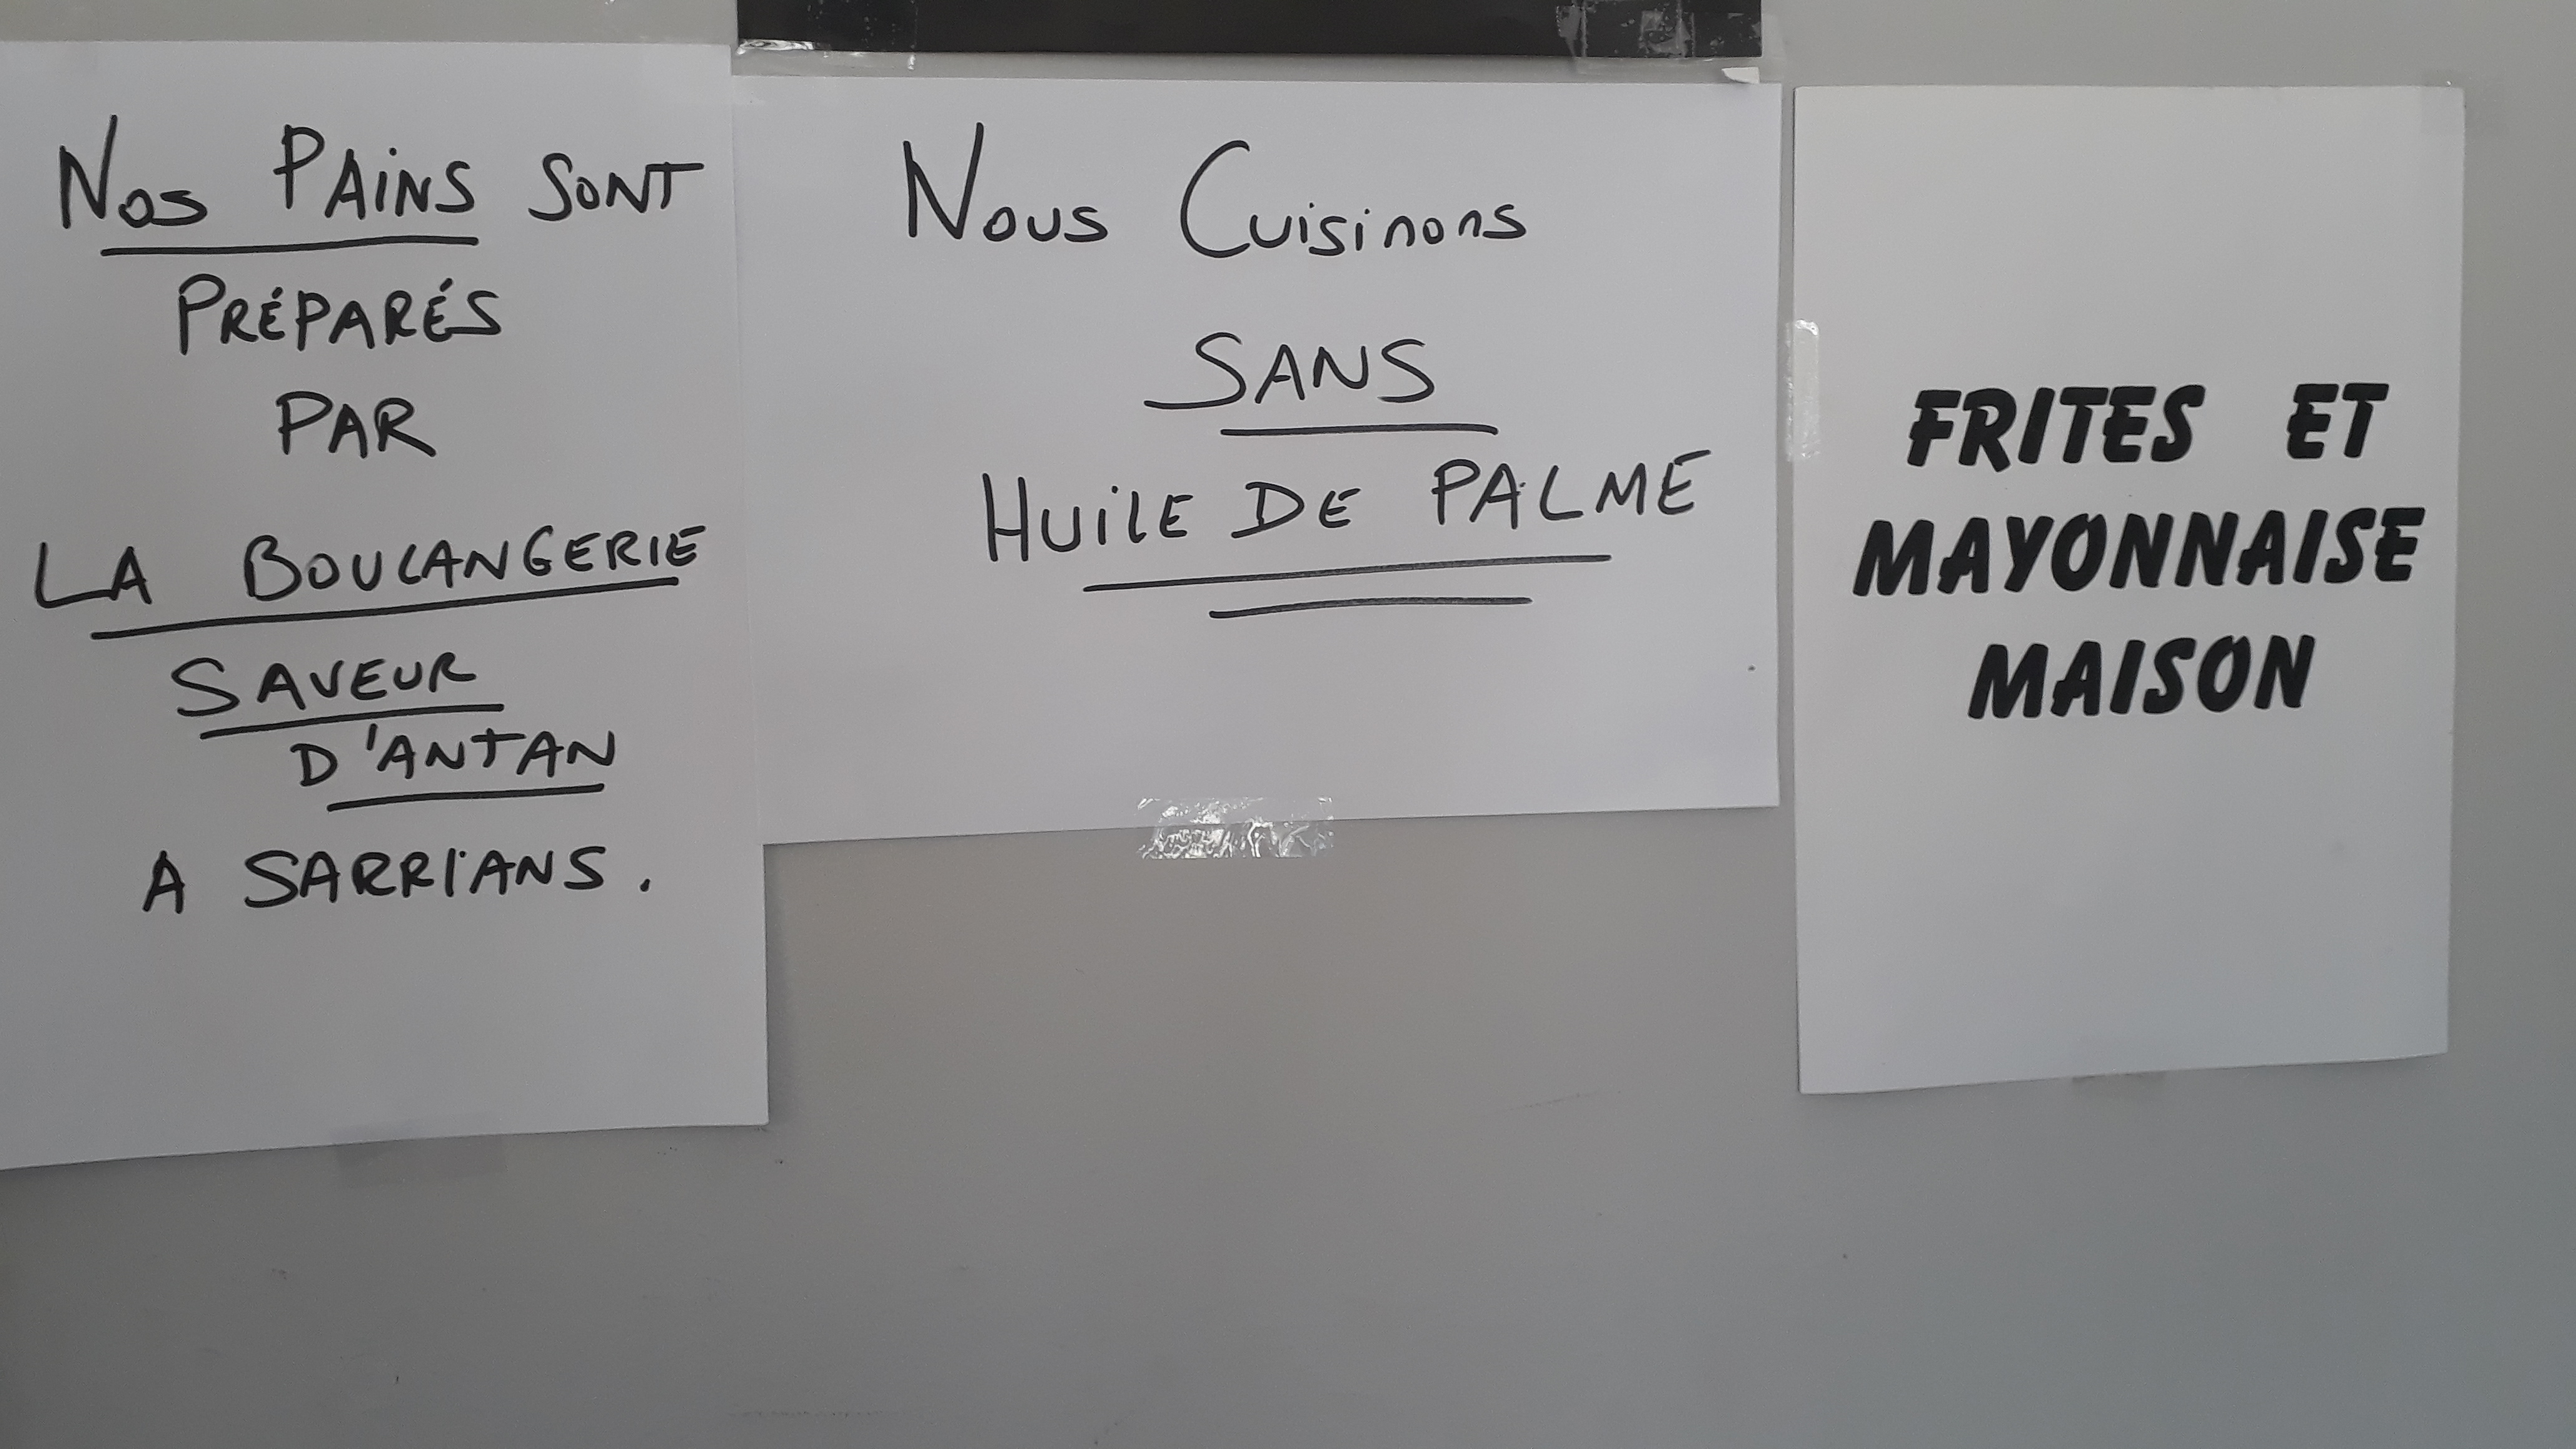 Nos PAiNS SONT
PRÉPARÉS
PAR
LA BOULANGERIE
SAVEUR
D'ANTAN
A SARRIANS.
Nous Cuisinons
SANS
HUiLE DE PALME
FRITES ET
MAYONNAISE
MAISON